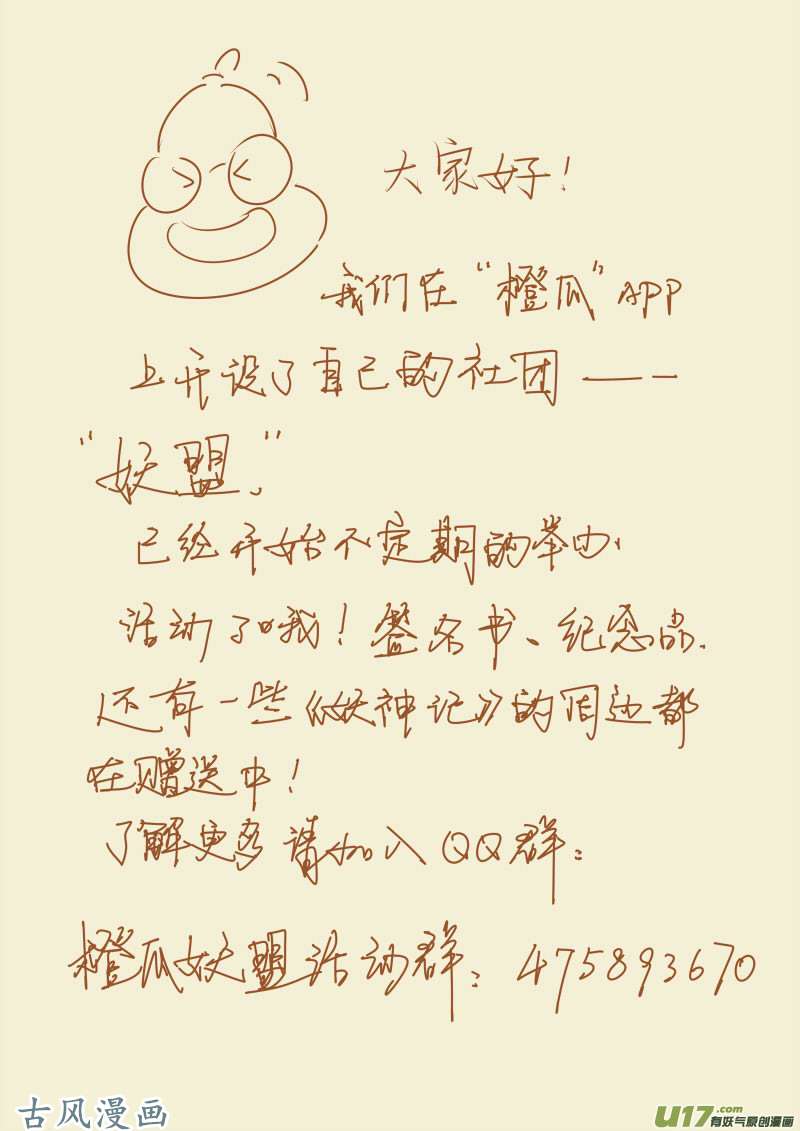 大家好！
我们在“橙瓜”APP
上开设了自己的社团——
“妖盟”
已经开始不定期的举办
活动了哦！签名书、纪念品.
还有一些《妖神记》的周边都
在赠送中！
了解更多请加入QQ群：
橙瓜妖盟活动群：475893670
古风漫画
U17.com
有妖气原创漫画